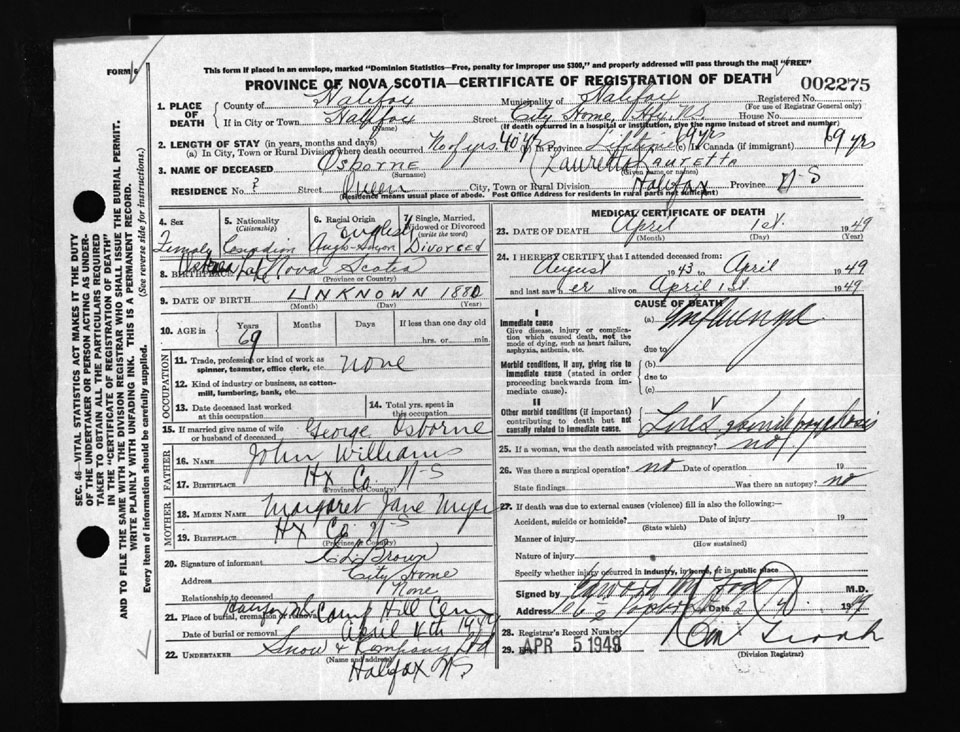 FORM 6
This form if placed in an envelope, marked "Dominion Statistics—Free, penalty for improper use $300," and properly addressed will pass through the mail "FREE"
PROVINCE OF NOVA SCOTIA—CERTIFICATE OF REGISTRATION OF DEATH
002275
1. PLACE OF DEATH
County of Halifax Municipality of Halifax Registered No.
(For use of Registrar General only)
If in City or Town Halifax Street City Home, Hfx. N.S. House No.
(Name) (If death occurred in a hospital or institution, give the name instead of street and number)
2. LENGTH OF STAY (in years, months and days)
(a) In City, Town or Rural Division where death occurred No of yrs. 40 (b) In Province Lifetime 69 yrs (c) In Canada (if immigrant) 69 yrs
3. NAME OF DECEASED Osborne Lauretta Lauretta
(Surname) (Given name or names)
RESIDENCE No. ? Street Queen City, Town or Rural Division Halifax Province N-S
Residence means usual place of abode. Post Office Address for residents in rural parts not sufficient)
4. Sex Female
5. Nationality (Citizenship) Canadian
6. Racial Origin English Anglo-Saxon
7. Single, Married, Widowed or Divorced (write the word) Divorced
8. BIRTHPLACE Nova Scotia
(Province or Country)
9. DATE OF BIRTH UNKNOWN 1880
(Month) (Day) (Year)
10. AGE in Years 69 Months Days If less than one day old
hrs. or min.
OCCUPATION
11. Trade, profession or kind of work as spinner, teamster, office clerk, etc. none
12. Kind of industry or business, as cotton-mill, lumbering, bank, etc.
13. Date deceased last worked at this occupation
14. Total yrs. spent in this occupation
15. If married give name of wife or husband of deceased George Osborne
FATHER
16. NAME John Williams
17. BIRTHPLACE Hx Co. N-S
(Province or Country)
MOTHER
18. MAIDEN NAME Margaret Jane Myer
19. BIRTHPLACE Hx Co. N-S
(Province or Country)
20. Signature of informant Brown
Address City Home
Relationship to deceased None
21. Place of burial, cremation or removal Camp Hill Cem
Date of burial or removal April 4th 1949
22. UNDERTAKER Snow & Company Ltd
(Name and address)
Halifax N.S
MEDICAL CERTIFICATE OF DEATH
23. DATE OF DEATH April 1st. 1949
(Month) (Day) (Year)
24. I HEREBY CERTIFY that I attended deceased from:
August 1943 to April 1949
and last saw her alive on April 1st 1949
CAUSE OF DEATH
I
Immediate cause
Give disease, injury or complication which caused death, not the mode of dying, such as heart failure, asphyxia, asthenia, etc.
(a) Influenza
due to
Morbid conditions, if any, giving rise to immediate cause (stated in order proceeding backwards from immediate cause).
(b)
due to
(c)
II
Other morbid conditions (if important) contributing to death but not causally related to immediate cause.
psychosis
25. If a woman, was the death associated with pregnancy? no
26. Was there a surgical operation? no Date of operation 19
State findings Was there an autopsy? no
27. If death was due to external causes (violence) fill in also the following:—
Accident, suicide or homicide? Date of injury 19
(State which)
Manner of injury
(How sustained)
Nature of injury
Specify whether injury occurred in industry, in home, or in public place
Signed by M.D.
Address Date 1949
28. Registrar's Record Number
29. APR 5 1949
(Division Registrar)
SEC. 46—VITAL STATISTICS ACT MAKES IT THE DUTY
OF THE UNDERTAKER OR PERSON ACTING AS UNDER-
TAKER TO OBTAIN ALL THE PARTICULARS REQUIRED
IN THE "CERTIFICATE OF REGISTRATION OF DEATH"
AND TO FILE THE SAME WITH THE DIVISION REGISTRAR WHO SHALL ISSUE THE BURIAL PERMIT.
WRITE PLAINLY WITH UNFADING INK. THIS IS A PERMANENT RECORD.
Every item of information should be carefully supplied. (See reverse side for instructions.)